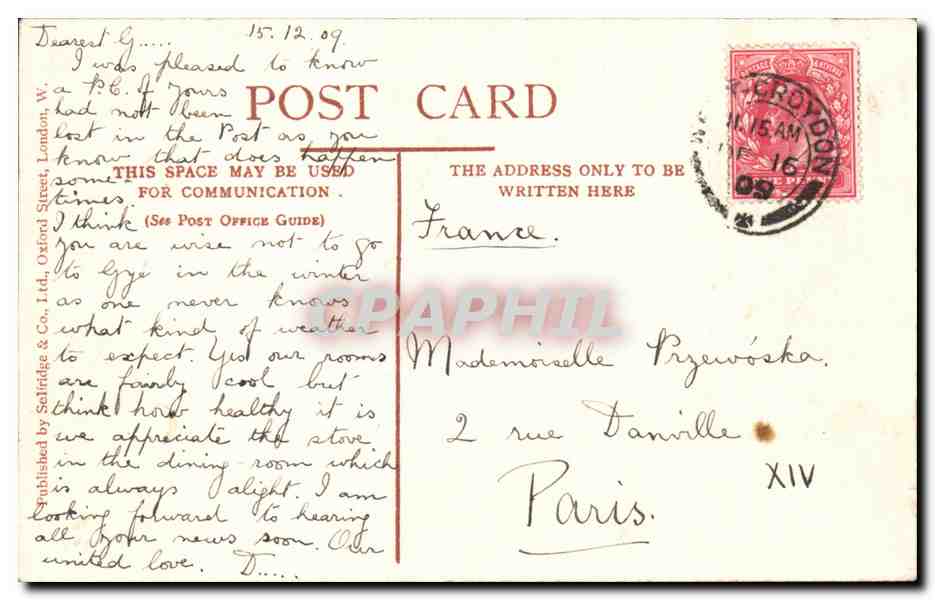 15.12.09.
Dearest G.....
I was pleased to know
a P.C. of yours
had not been
lost in the Post as you
know that does happen
some-
times.
I think
you are wise not to go
to Gyé in the winter
as one never knows
what kind of weather
to expect. Yes our rooms
are fairly cool but
think how healthy it is
we appreciate the stove
in the dining-room which
is always alight. I am
looking forward to hearing
all your news soon. Our
united love. D.....
POST CARD
THIS SPACE MAY BE USED
FOR COMMUNICATION.
(SEE POST OFFICE GUIDE)
THE ADDRESS ONLY TO BE
WRITTEN HERE
France.
Mademoiselle Przewóska.
2 rue Danville
XIV
Paris.
Published by Selfridge & Co., Ltd., Oxford Street, London, W.
CROYDON
11.15 AM
DE 16
09
POSTAGE & REVENUE
CPAPHIL